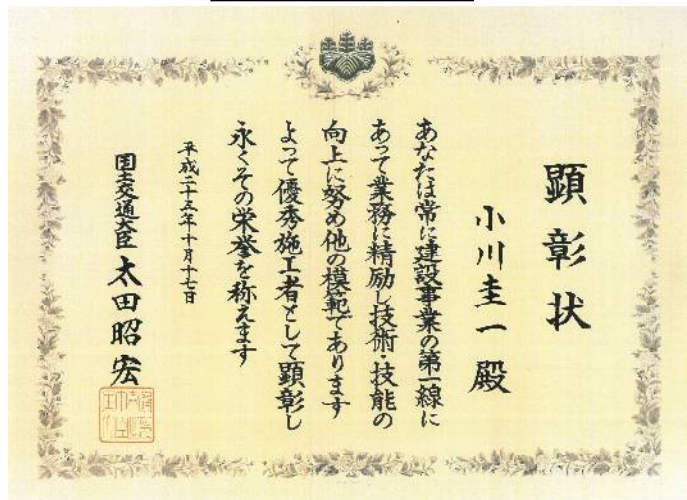 顕彰状
小川圭一殿
あなたは常に建設事業の第一線に
あって業務に精励し技術・技能の
向上に努め他の模範であります
よって優秀施工者として顕彰し
永くその栄誉を称えます
平成二十五年十月十七日
国土交通大臣 太田昭宏